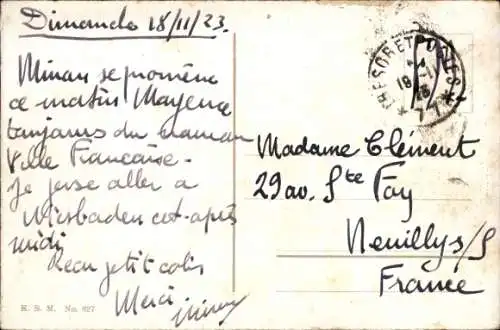 Dimanche 18/11/23.
Minou se promène
ce matin Mayence
toujours du
Ville Française -
Je pense aller a
Wiesbaden cet après
midi
Recu petit colis
Merci
K. S. M. No. 627
TRESOR ET POSTES
* 77 *
Madame Clément
29 av. Ste Foy
Neuilly s/S
France